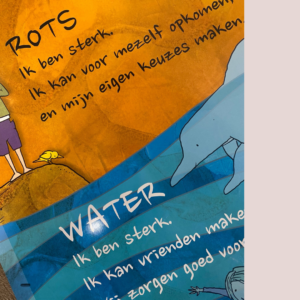 ROTS
Ik ben sterk.
Ik kan voor mezelf opkomen,
en mijn eigen keuzes maken.
WATER
Ik ben sterk.
Ik kan vrienden make
zorgen goed voor